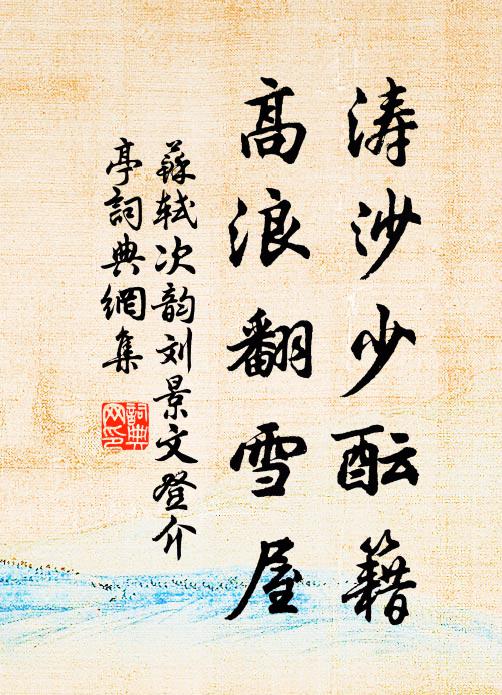 涛沙少酝籍
高浪翻雪屋
蘇轼次韵刘景文登介
亭詞典網集
詞典
网印